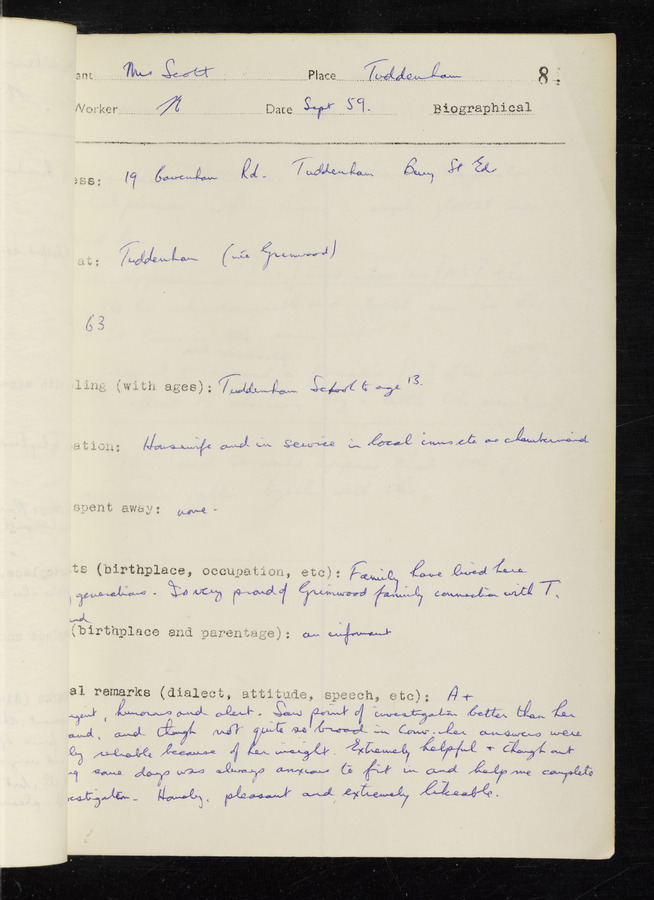 ant Mrs Scott Place Tuddenham 8
Worker Date Sept 59. Biographical
ess: 19 Cavenham Rd. Tuddenham Bury St Eds
at: Tuddenham (née Grimwood)
63
ling (with ages): Tuddenham School to age 13.
ation: Housewife and in service in local inns etc as chambermaid
spent away: none.
ts (birthplace, occupation, etc): Family have lived here
generations. Is very proud of Grimwood family connection with T.
(birthplace and parentage): an informant
al remarks (dialect, attitude, speech, etc): A+
gent, humorous and alert. Saw point of investigation better than her
and, and though not quite so broad in conv. her answers were
ly reliable because of her insight. Extremely helpful + though out
g some days was always anxious to fit in and help me complete
estigation. Homely, pleasant and extremely likeable.